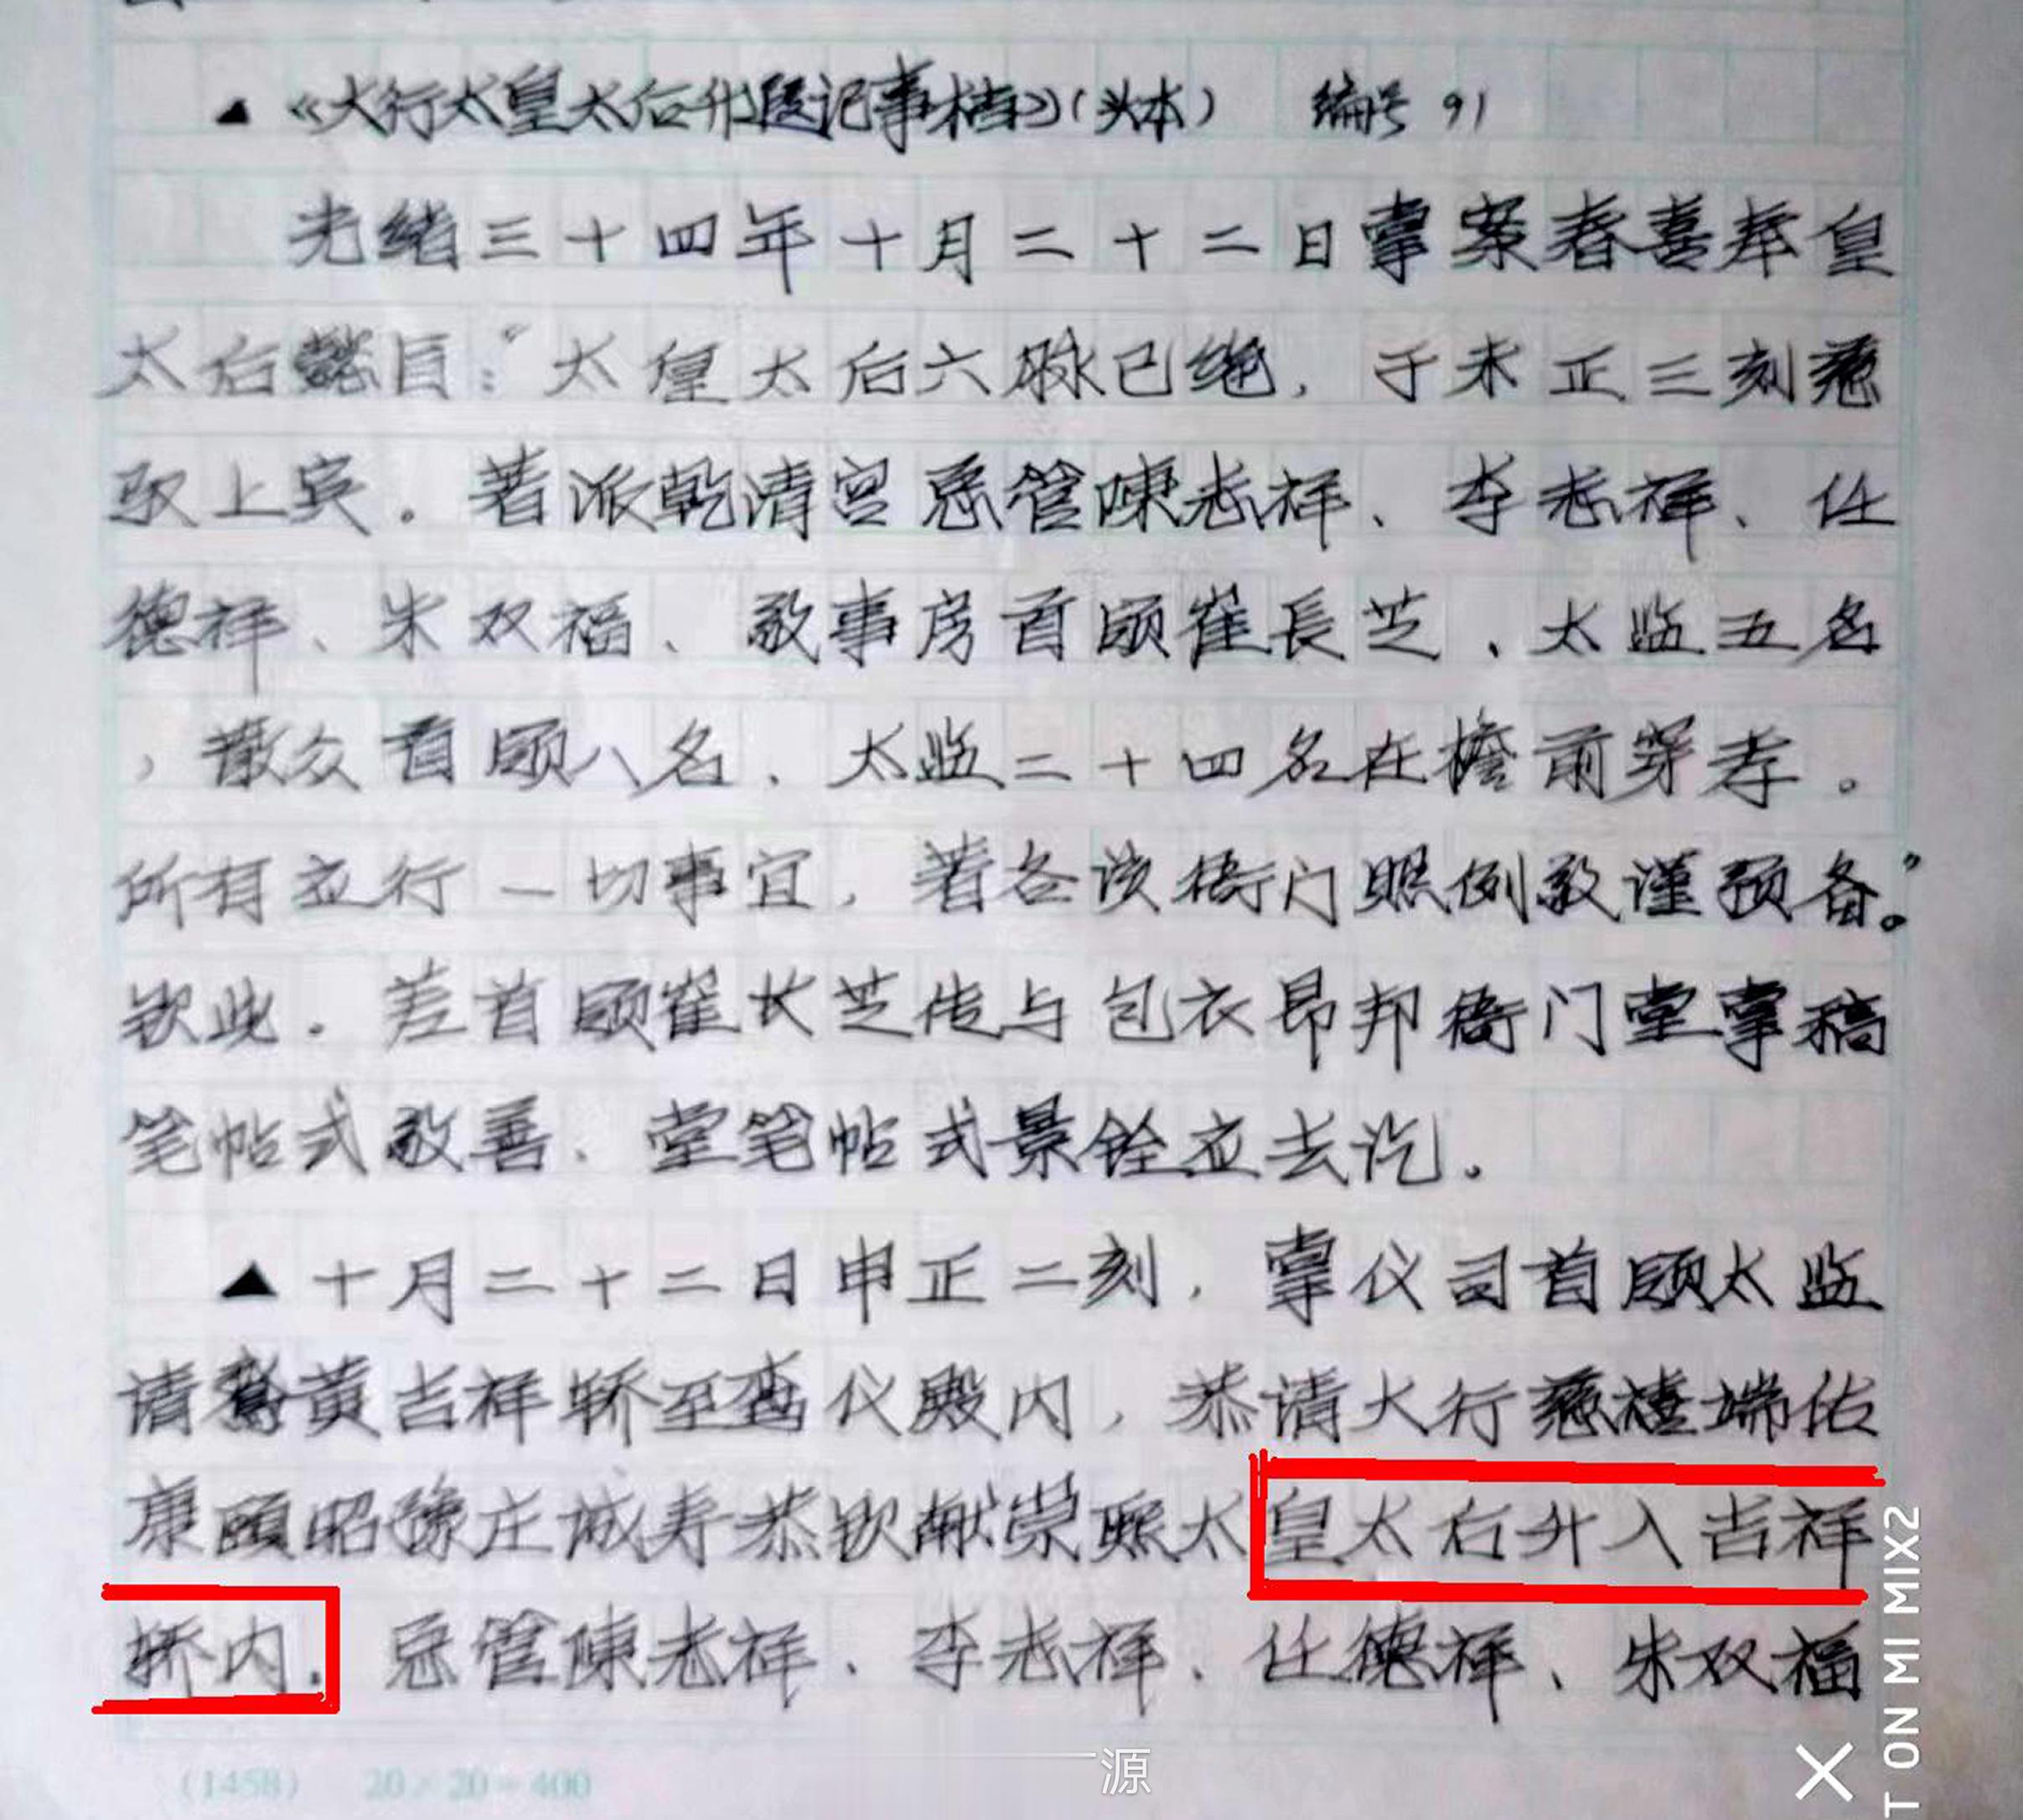 ▲《大行太皇太后升遐记事档》(头本) 编号 91
光绪三十四年十月二十二日掌案春喜奉皇
太后懿旨："太皇太后六脉已绝，于未正三刻慈
驭上宾。著派乾清宫总管陳志祥、李志祥、任
德祥、朱双福、敬事房首领崔長芝，太监五名
，散众首领八名，太监二十四名在檐前穿孝。
所有应行一切事宜，著各该衙门照例敬谨预备。"
钦此。差首领崔长芝传与包衣昂邦衙门堂掌稿
笔帖式敬善、堂笔帖式景铨应去讫。
▲十月二十二日申正二刻，掌仪司首领太监
请鹅黄吉祥轿至鸾仪殿内，恭请大行慈禧端佑
康颐昭豫庄诚寿恭钦献崇熙太皇太后升入吉祥
轿内。总管陳志祥、李志祥、任德祥、朱双福
(1458) 20×20=400
源
T ON MI MIX2